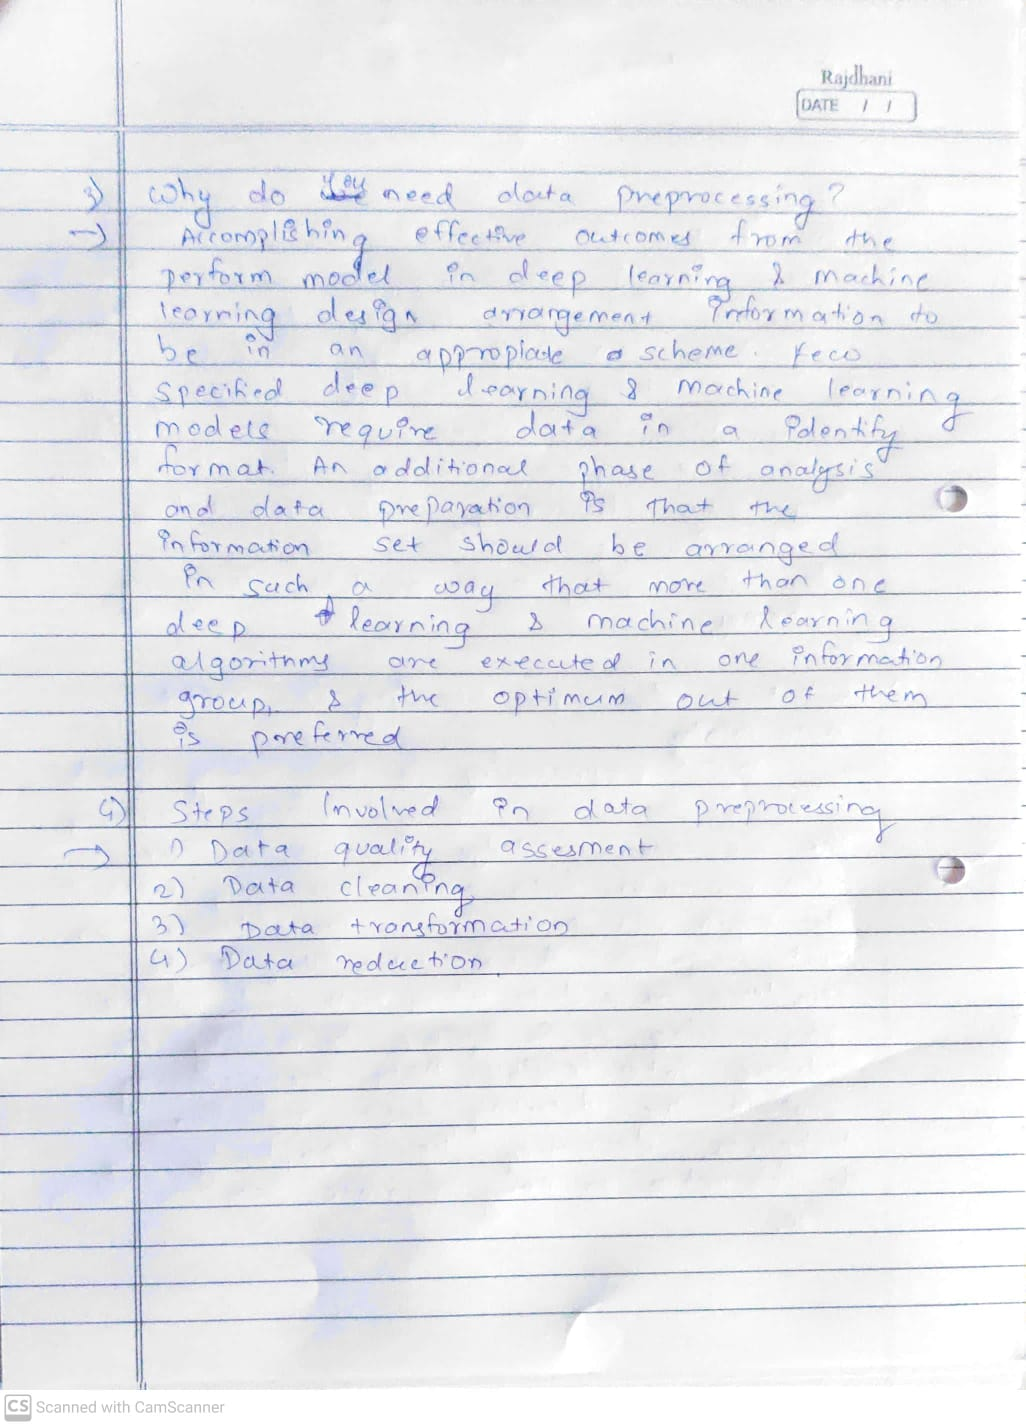 Rajdhani
DATE / /
3) Why do you need data preprocessing?
→) Accomplishing effective outcomes from the
perform model in deep learning & machine
learning design arrangement information to
be in an appropiate scheme. Few
specified deep learning & machine learning
models require data in a identify
format. An additional phase of analysis
and data preparation is that the
information set should be arranged
in such a way that more than one
deep learning & machine learning
algorithms are executed in one information
group, & the optimum out of them
is preferred
4) Steps Involved in data preprocessing
→ 1) Data quality assesment
2) Data cleaning
3) Data transformation
4) Data reduction
CS Scanned with CamScanner